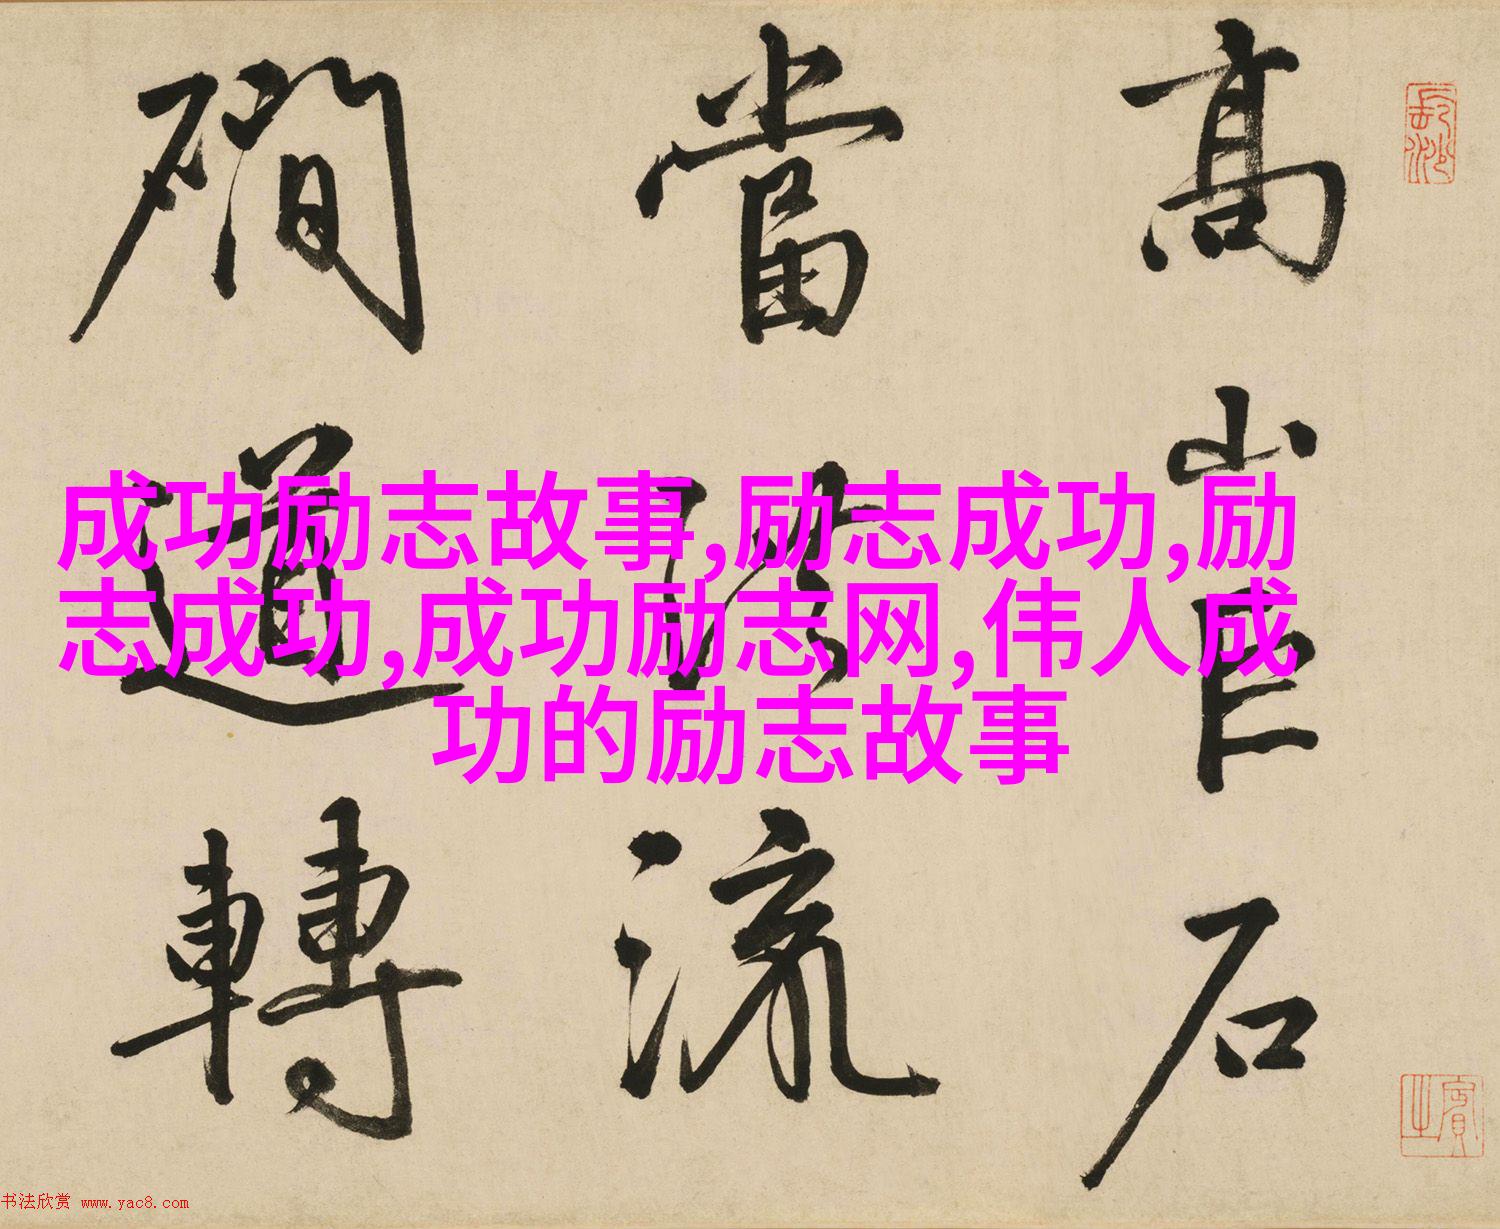 高山巨石
當路流
磵道轉
成功励志故事,励志成功,励
志成功,成功励志网,伟人成
功的励志故事
长沙
书法欣赏 www.yac8.com